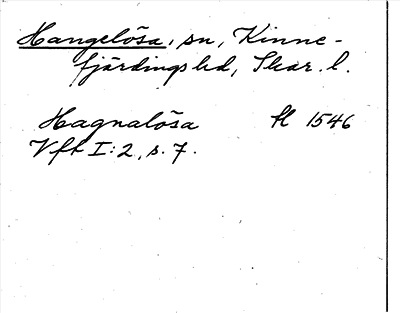 Hangelösa, sn, Kinne-
fjärdings hd, Skar. l.
Hagnalösa fl 1546
Vft I:2, s. 7.